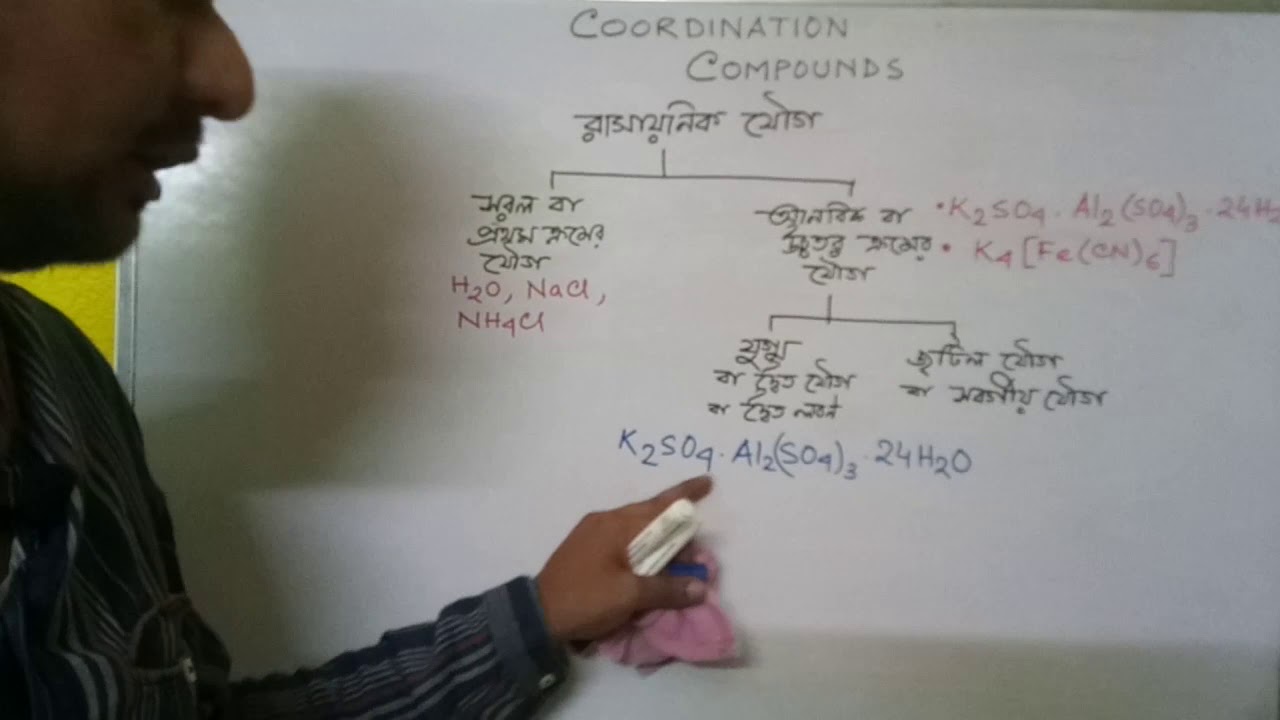 COORDINATION
COMPOUNDS
রাসায়নিক যৌগ
সরল বা
প্রথম ক্রমের
যৌগ
H₂O, NaCl,
NH₄Cl
আনবিক বা
উচ্চতর ক্রমের
যৌগ
• K₂SO₄ · Al₂(SO₄)₃ · 24H₂
• K₄[Fe(CN)₆]
যুগ্ম
বা দ্বৈত যৌগ
বা দ্বৈত লবণ
জটিল যৌগ
বা সবর্গীয় যৌগ
K₂SO₄ · Al₂(SO₄)₃ · 24H₂O